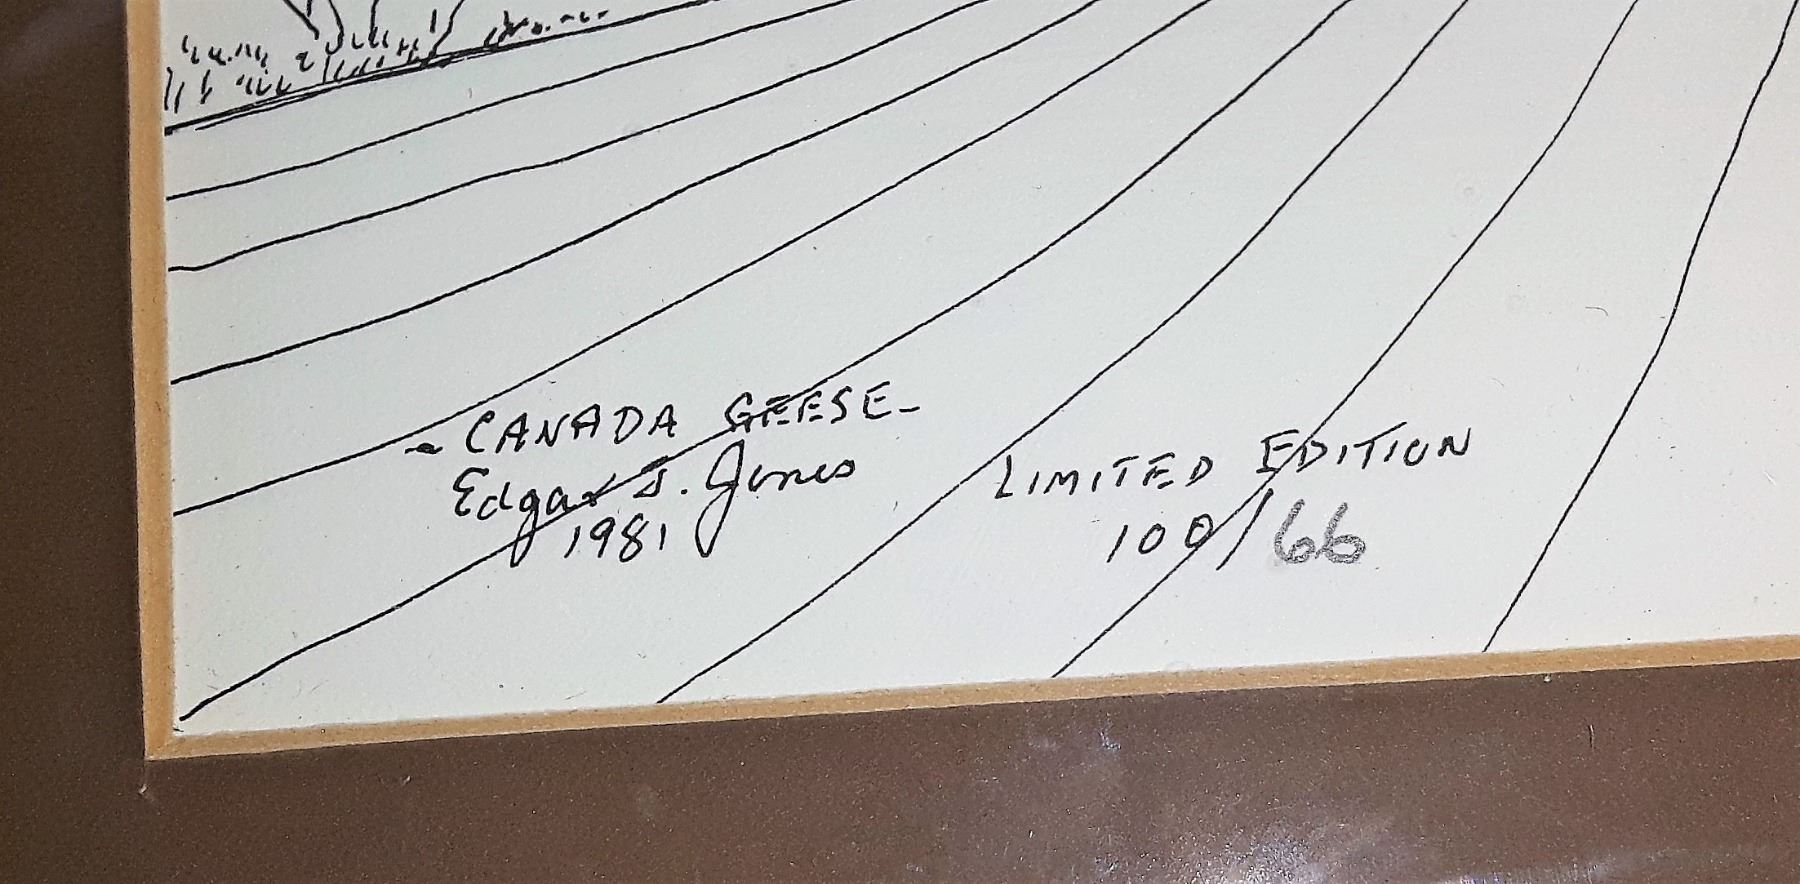 - CANADA GEESE -
Edgar J. Jones
1981
LIMITED EDITION
100/66